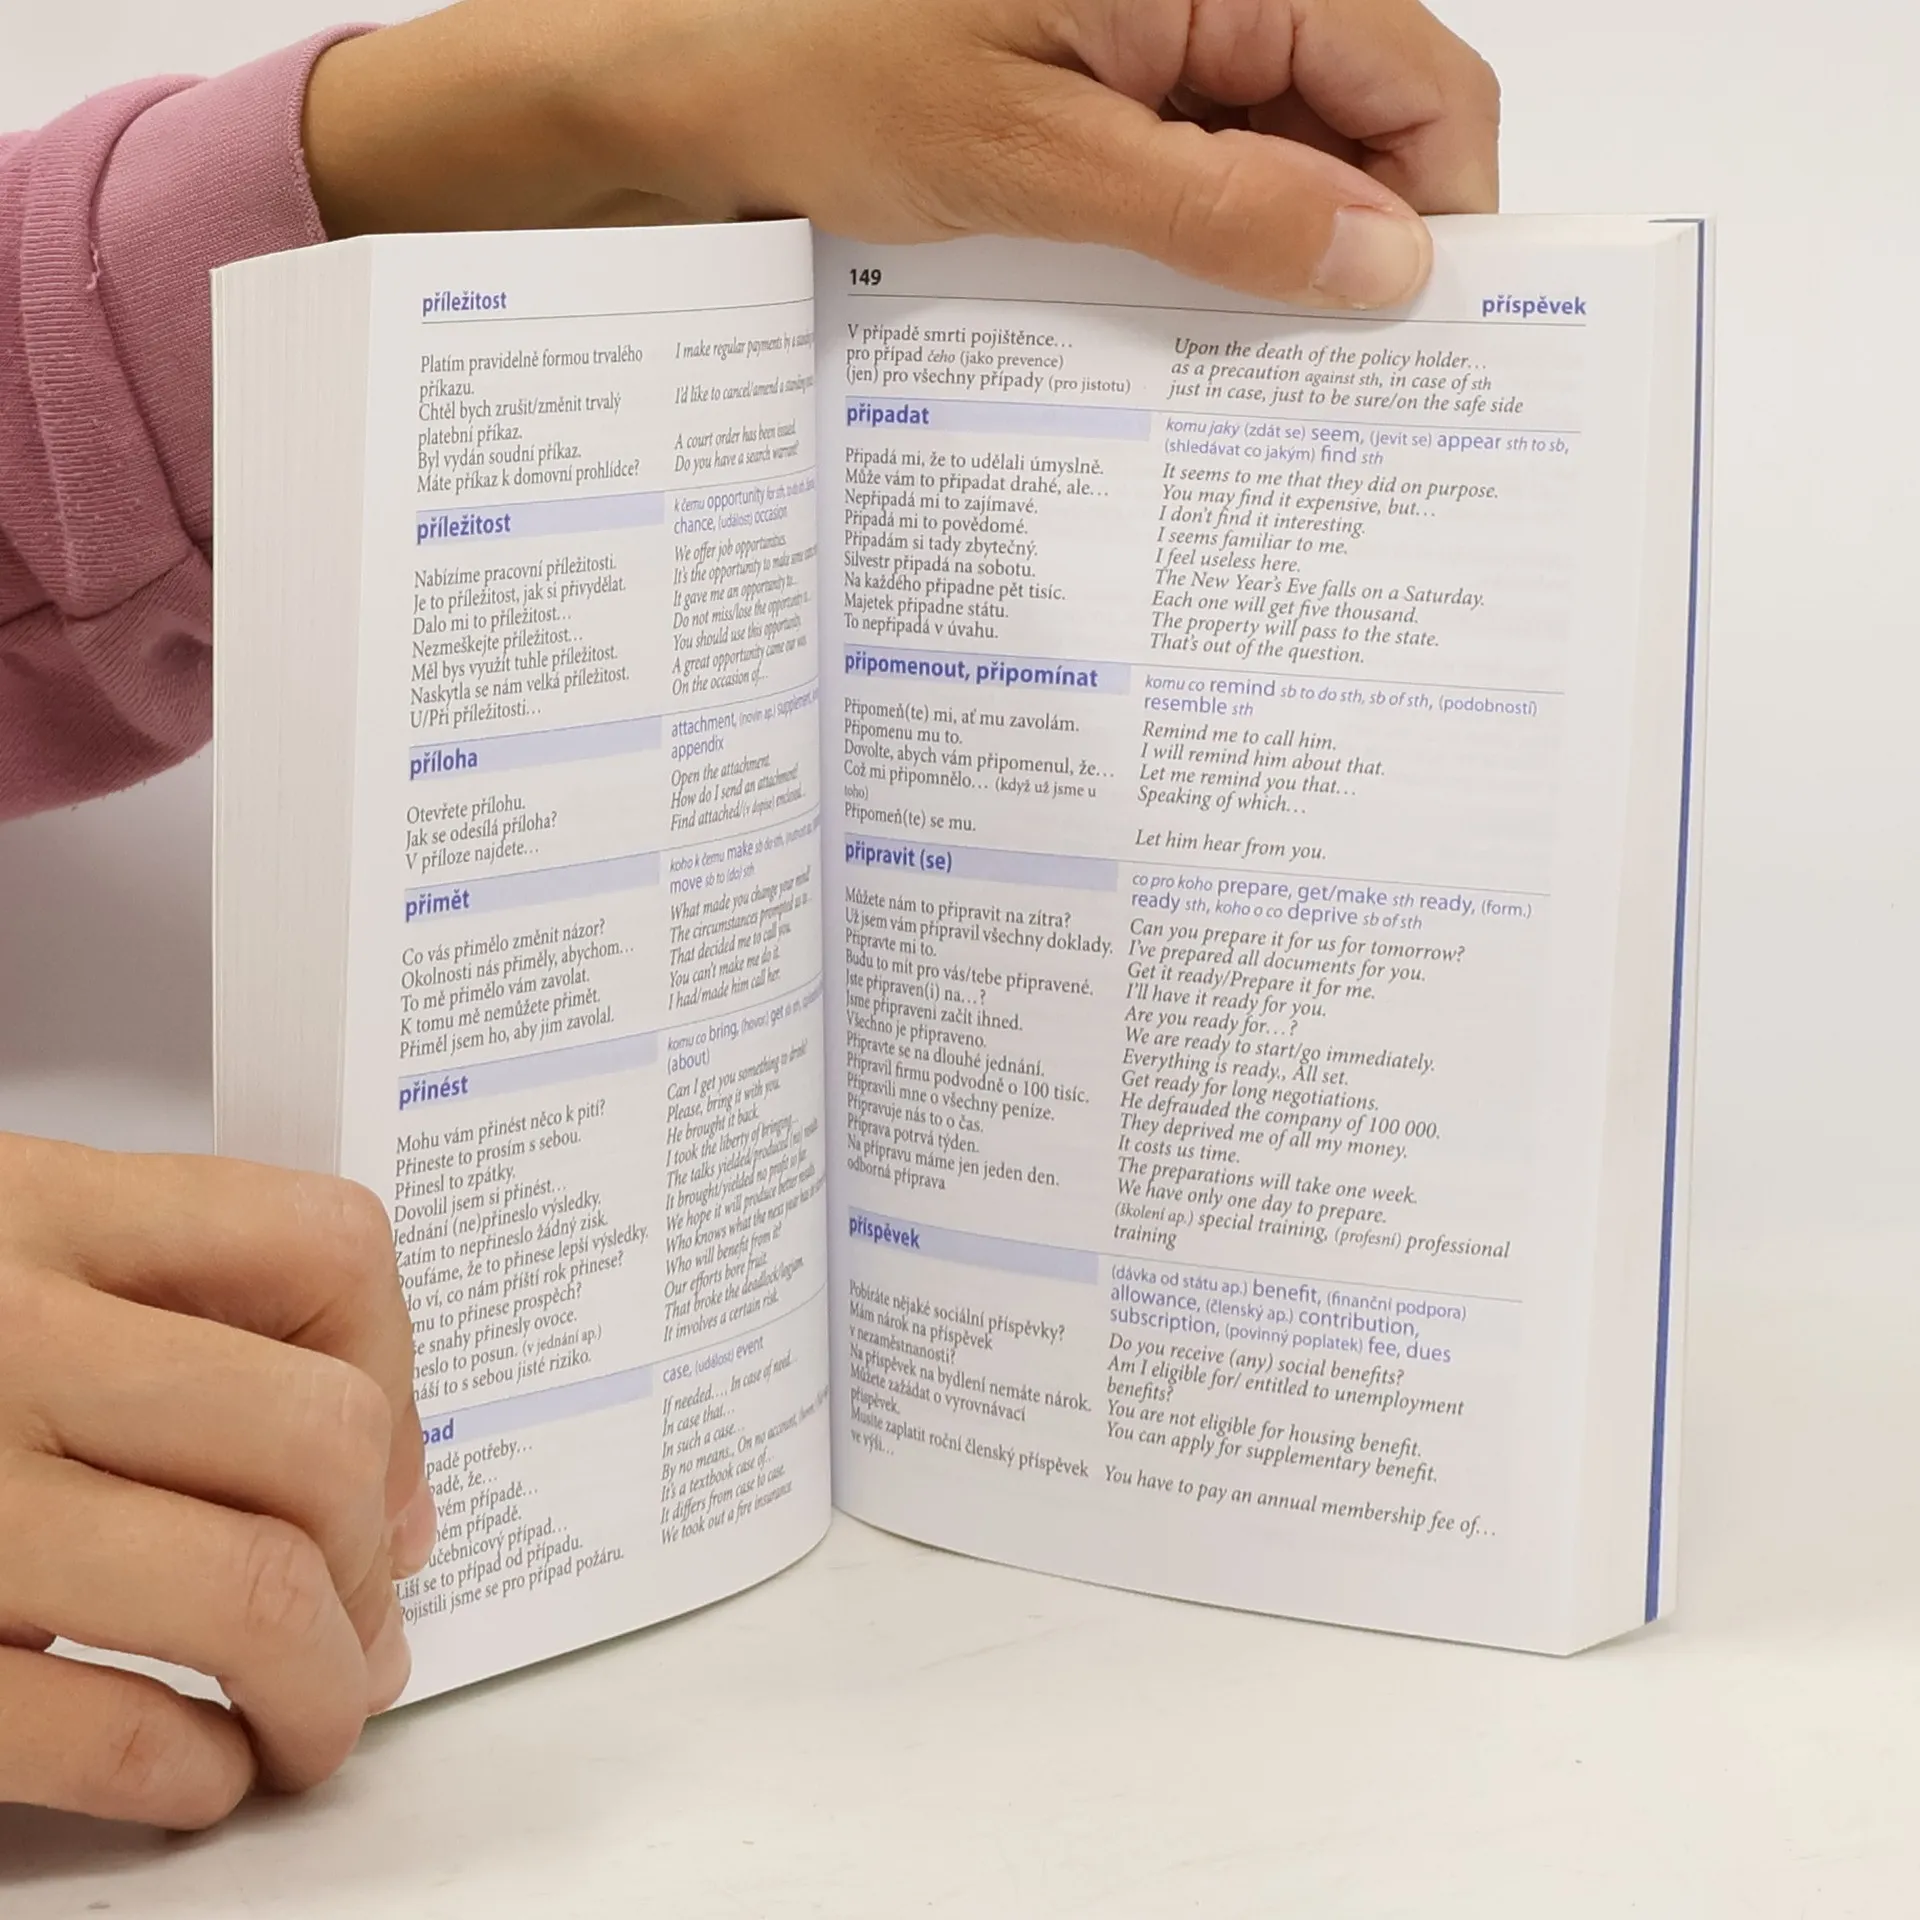 příležitost
Platím pravidelně formou trvalého
příkazu.
Chtěl bych zrušit/změnit trvalý
platební příkaz.
Byl vydán soudní příkaz.
Máte příkaz k domovní prohlídce?
I make regular payments by a
I'd like to cancel/amend a standing
A court order has been issued.
Do you have a search warrant?
příležitost
k čemu opportunity for sth, to do sth,
chance, (událost) occasion
Nabízíme pracovní příležitosti.
Je to příležitost, jak si přivydělat.
Dalo mi to příležitost…
Nezmeškejte příležitost…
Měl bys využít tuhle příležitost.
Naskytla se nám velká příležitost.
U/Při příležitosti…
We offer job opportunities.
It's the opportunity to make some
It gave me an opportunity to…
Do not miss/lose the opportunity
You should use this opportunity.
A great opportunity came our way.
On the occasion of…
příloha
attachment, (novin ap.) supplement,
appendix
Otevřete přílohu.
Jak se odesílá příloha?
V příloze najdete…
Open the attachment.
How do I send an attachment?
Find attached/(v dopise) enclosed…
přimět
koho k čemu make sb do sth,
move sb to (do) sth
Co vás přimělo změnit názor?
Okolnosti nás přiměly, abychom…
To mě přimělo vám zavolat.
K tomu mě nemůžete přimět.
Přiměl jsem ho, aby jim zavolal.
What made you change your mind?
The circumstances prompted us to…
That decided me to call you.
You can't make me do it.
I had/made him call her.
přinést
komu co bring, (hovor.) get sb sth,
(about)
Mohu vám přinést něco k pití?
Přineste to prosím s sebou.
Přinesl to zpátky.
Dovolil jsem si přinést…
Jednání (ne)přineslo výsledky.
Zatím to nepřineslo žádný zisk.
Doufáme, že to přinese lepší výsledky.
do ví, co nám příští rok přinese?
mu to přinese prospěch?
e snahy přinesly ovoce.
neslo to posun. (v jednání ap.)
náší to s sebou jisté riziko.
Can I get you something to drink?
Please, bring it with you.
He brought it back.
I took the liberty of bringing…
The talks yielded/produced (no) results.
It brought/yielded no profit so far.
We hope it will produce better results.
Who knows what the next year has in
Who will benefit from it?
Our efforts bore fruit.
That broke the deadlock/logjam.
It involves a certain risk.
pad
case, (událost) event
padě potřeby…
padě, že…
vém případě…
ném případě.
učebnicový případ…
Liší se to případ od případu.
Pojistili jsme se pro případ požáru.
If needed…, In case of need…
In case that…
In such a case…
By no means., On no account,
It's a textbook case of…
It differs from case to case.
We took out a fire insurance.
149
příspěvek
V případě smrti pojištěnce…
pro případ čeho (jako prevence)
(jen) pro všechny případy (pro jistotu)
Upon the death of the policy holder…
as a precaution against sth, in case of sth
just in case, just to be sure/on the safe side
připadat
komu jaký (zdát se) seem, (jevit se) appear sth to sb,
(shledávat co jakým) find sth
Připadá mi, že to udělali úmyslně.
Může vám to připadat drahé, ale…
Nepřipadá mi to zajímavé.
Připadá mi to povědomé.
Připadám si tady zbytečný.
Silvestr připadá na sobotu.
Na každého připadne pět tisíc.
Majetek připadne státu.
To nepřipadá v úvahu.
It seems to me that they did on purpose.
You may find it expensive, but…
I don't find it interesting.
I seems familiar to me.
I feel useless here.
The New Year's Eve falls on a Saturday.
Each one will get five thousand.
The property will pass to the state.
That's out of the question.
připomenout, připomínat
komu co remind sb to do sth, sb of sth, (podobností)
resemble sth
Připomeň(te) mi, ať mu zavolám.
Připomenu mu to.
Dovolte, abych vám připomenul, že…
Což mi připomnělo… (když už jsme u
toho)
Připomeň(te) se mu.
Remind me to call him.
I will remind him about that.
Let me remind you that…
Speaking of which…
Let him hear from you.
připravit (se)
co pro koho prepare, get/make sth ready, (form.)
ready sth, koho o co deprive sb of sth
Můžete nám to připravit na zítra?
Už jsem vám připravil všechny doklady.
Připravte mi to.
Budu to mít pro vás/tebe připravené.
Jste připraven(i) na…?
Jsme připraveni začít ihned.
Všechno je připraveno.
Připravte se na dlouhé jednání.
Připravil firmu podvodně o 100 tisíc.
Připravili mne o všechny peníze.
Připravuje nás to o čas.
Příprava potrvá týden.
Na přípravu máme jen jeden den.
odborná příprava
Can you prepare it for us for tomorrow?
I've prepared all documents for you.
Get it ready/Prepare it for me.
I'll have it ready for you.
Are you ready for…?
We are ready to start/go immediately.
Everything is ready., All set.
Get ready for long negotiations.
He defrauded the company of 100 000.
They deprived me of all my money.
It costs us time.
The preparations will take one week.
We have only one day to prepare.
(školení ap.) special training, (profesní) professional
training
příspěvek
(dávka od státu ap.) benefit, (finanční podpora)
allowance, (členský ap.) contribution,
subscription, (povinný poplatek) fee, dues
Pobíráte nějaké sociální příspěvky?
Mám nárok na příspěvek
v nezaměstnanosti?
Na příspěvek na bydlení nemáte nárok.
Můžete zažádat o vyrovnávací
příspěvek.
Musíte zaplatit roční členský příspěvek
ve výši…
Do you receive (any) social benefits?
Am I eligible for/ entitled to unemployment
benefits?
You are not eligible for housing benefit.
You can apply for supplementary benefit.
You have to pay an annual membership fee of…